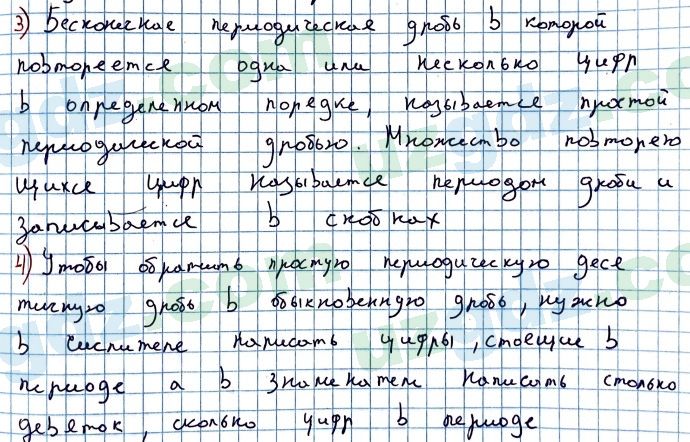 3) Бесконечная периодическая дробь в которой
повторяется одна или несколько цифр
в определенном порядке, называется простой
периодической дробью. Множество повторяю
щихся цифр называется периодом дроби и
записывается в скобках
4) Чтобы обратить простую периодическую деся
тичную дробь в обыкновенную дробь, нужно
в числителе написать цифры, стоящие в
периоде а в знаменателе написать столько
девяток, сколько цифр в периоде